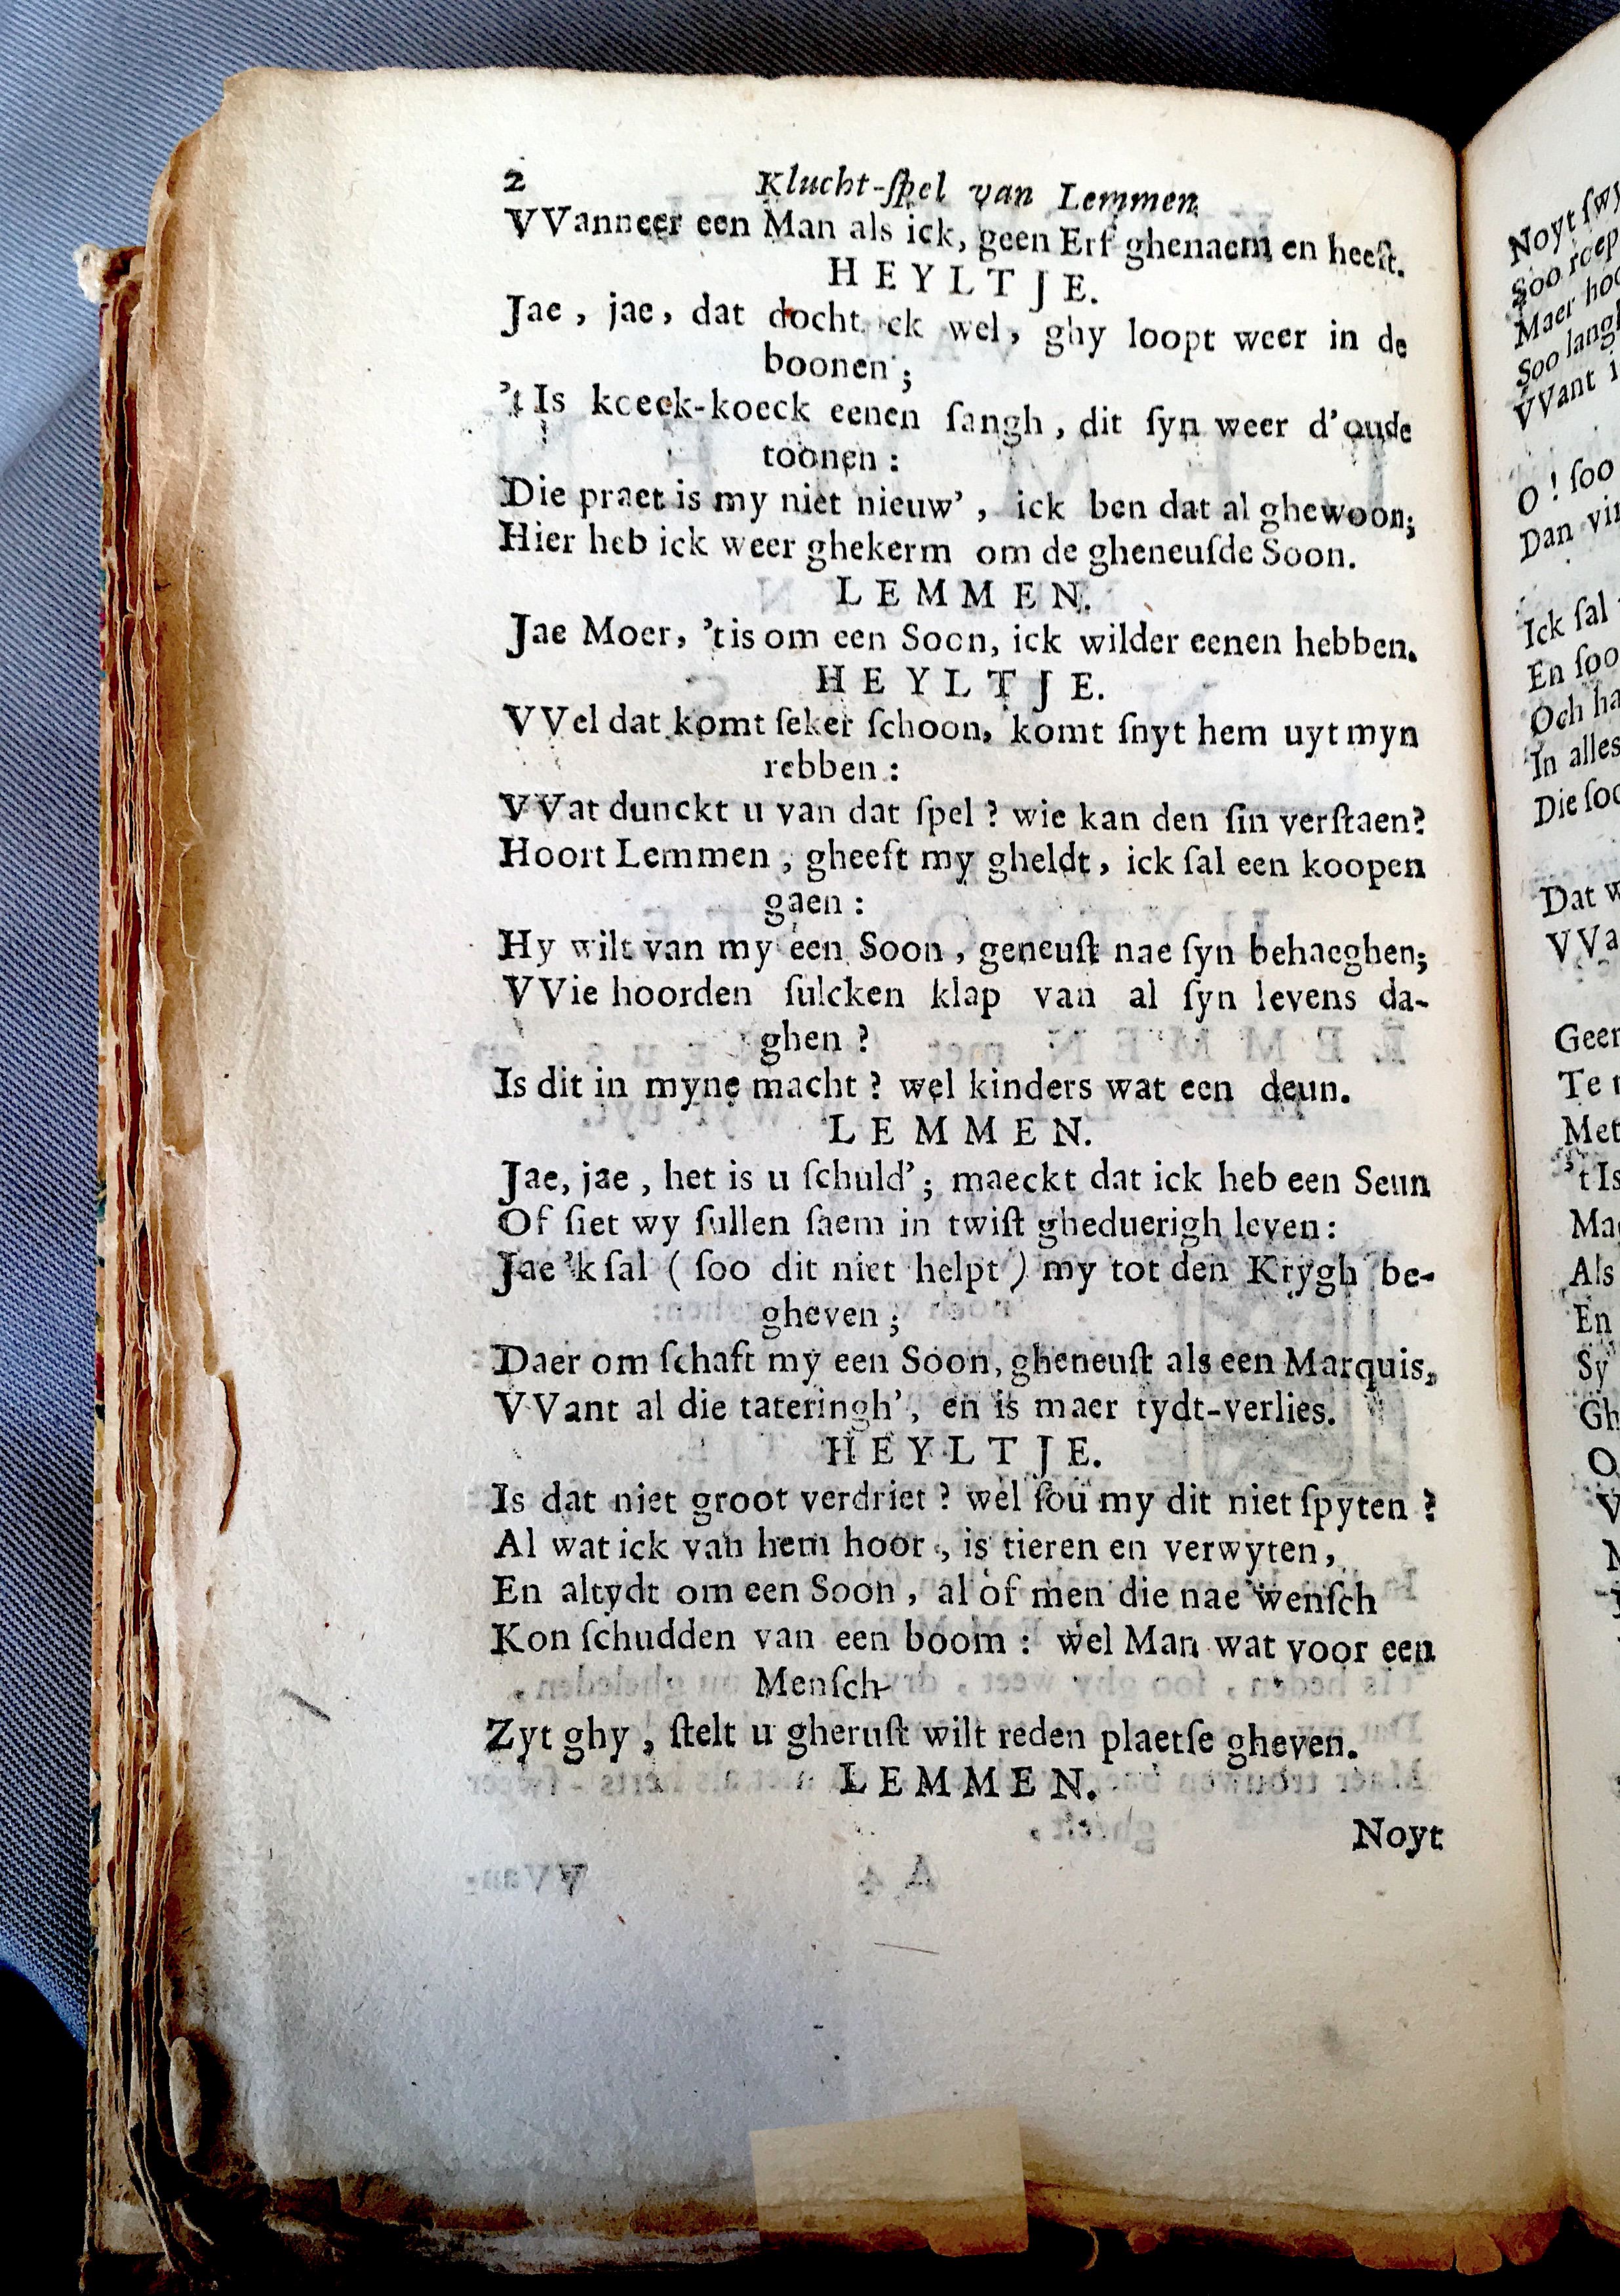 2 Klucht-ſpel van Lemmen
VVanneer een Man als ick, geen Erf ghenaem en heeft.
HEYLTJE.
Jae, jae, dat docht ick wel, ghy loopt weer in de
boonen;
't Is koeck-koeck eenen ſangh, dit ſyn weer d'oude
toonen:
Die praet is my niet nieuw', ick ben dat al ghewoon;
Hier heb ick weer ghekerm om de gheneuſde Soon.
LEMMEN.
Jae Moer, 'tis om een Soon, ick wilder eenen hebben.
HEYLTJE.
VVel dat komt ſeker ſchoon, komt ſnyt hem uyt myn
rebben:
VVat dunckt u van dat ſpel? wie kan den ſin verſtaen?
Hoort Lemmen, gheeft my gheldt, ick ſal een koopen
gaen:
Hy wilt van my een Soon, geneuſt nae ſyn behaeghen;
VVie hoorden ſulcken klap van al ſyn levens da-
ghen?
Is dit in myne macht? wel kinders wat een deun.
LEMMEN.
Jae, jae, het is u ſchuld'; maeckt dat ick heb een Seun
Of ſiet wy ſullen ſaem in twiſt gheduerigh leven:
Jae 'k ſal (ſoo dit niet helpt) my tot den Krygh be-
gheven;
Daer om ſchaft my een Soon, gheneuſt als een Marquis,
VVant al die tateringh', en is maer tydt-verlies.
HEYLTJE.
Is dat niet groot verdriet? wel ſou my dit niet ſpyten?
Al wat ick van hem hoor, is tieren en verwyten,
En altydt om een Soon, al of men die nae wenſch
Kon ſchudden van een boom: wel Man wat voor een
Menſch
Zyt ghy, ſtelt u gheruſt wilt reden plaetſe gheven.
LEMMEN.
Noyt
Noyt
Maer
Soo
VVant
O! ſoo
Dan
Ick ſal
En ſoo
Och
In alles
Dat
Te
Met
't Is
Als
En
Sy